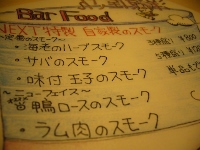 Bar Food
NEXT 特製 自家製のスモーク
~定番のスモーク~
・海老のハーブスモーク
・サバのスモーク
・味付玉子のスモーク
~ニューフェイス~
・鴨ロースのスモーク
・ラム肉のスモーク